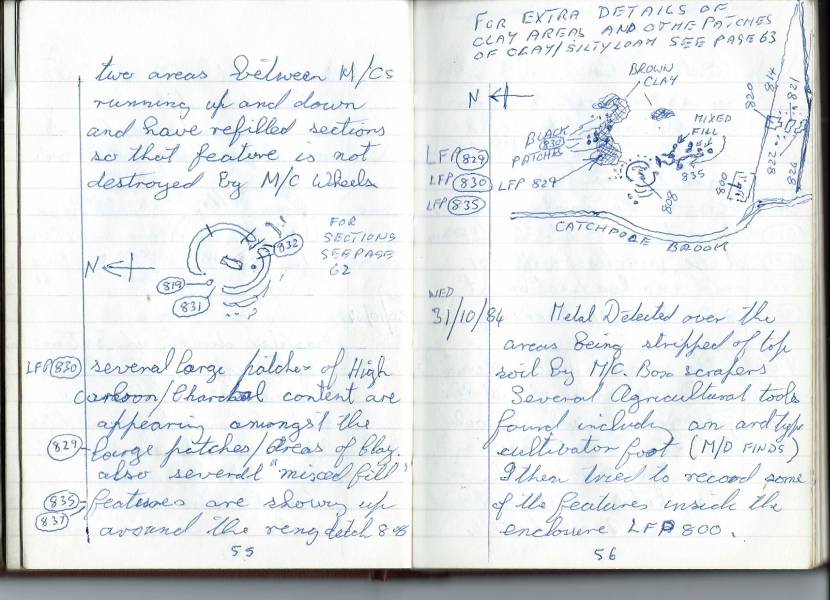 two areas between M/Cs
running up and down
and have refilled sections
so that feature is not
destroyed by M/C Wheels
FOR
SECTIONS
SEE PAGE
62
832
N
819
831
LFP 830 several large patches of High
Carboon/Charcoal content are
appearing amongst the
829 large patches/areas of Clay.
also several "mixed fill"
835 features are showing up
837 around the ring ditch 808
55
FOR EXTRA DETAILS OF
CLAY AREAS AND OTHE PATCHES
OF CLAY/SILTY LOAM SEE PAGE 63
BROWN
CLAY
N
BLACK
830
PATCHES
MIXED
FILL
835
LFP 829
LFP 830
LFP 835
LFP 829
808
800
028
418
128
228
928
CATCHPOLE BROOK
WED
31/10/84 Metal Detected over the
areas being stripped of top
soil by M/C. Box scrapers
Several Agricultural tools
found including an ard type
cultivator foot (M/D FINDS)
I then tried to record some
of the features inside the
enclosure LFP 800.
56